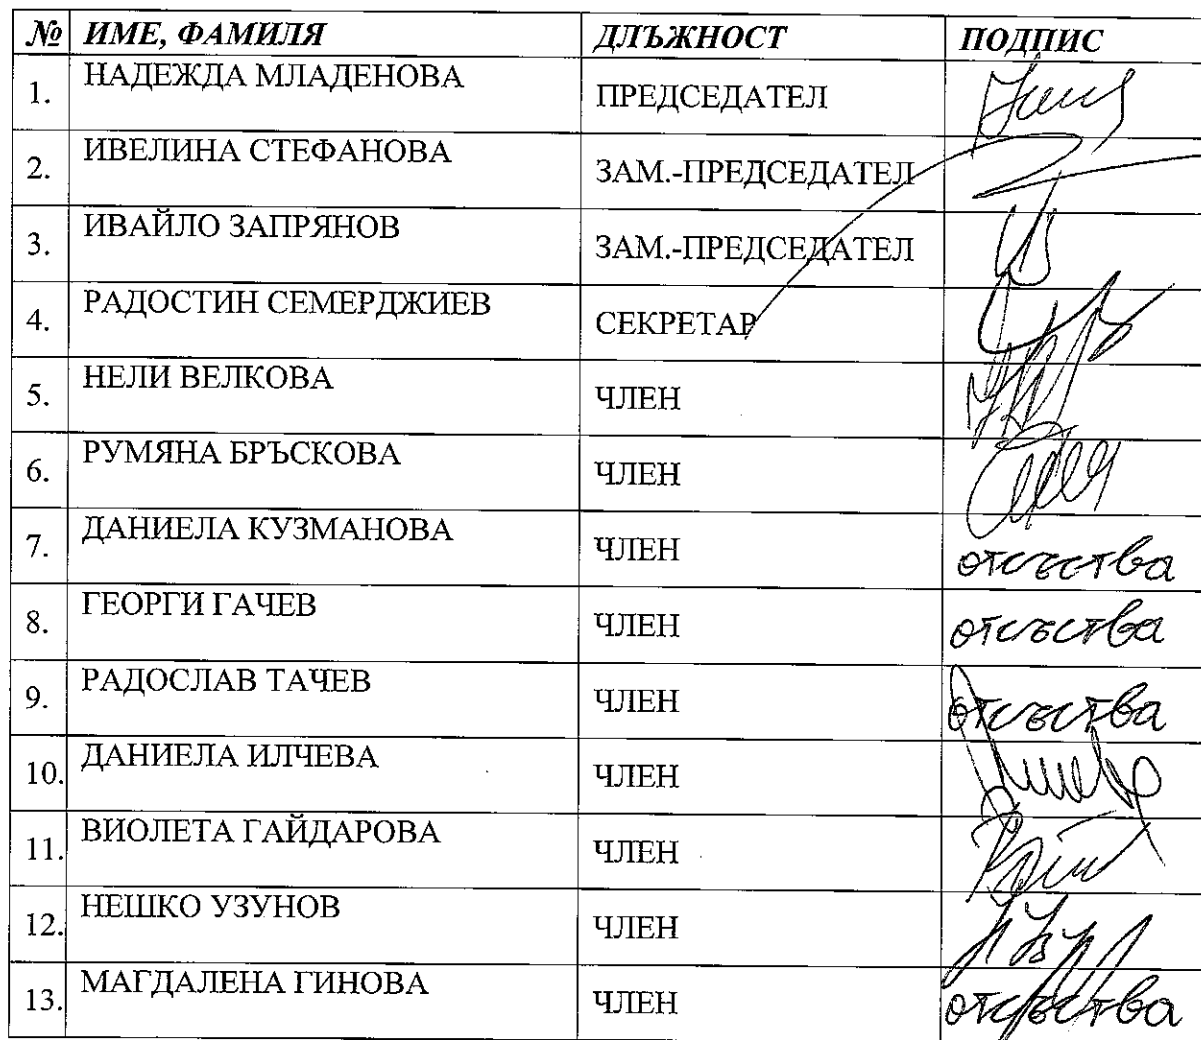 № ИМЕ, ФАМИЛЯ ДЛЪЖНОСТ ПОДПИС
1. НАДЕЖДА МЛАДЕНОВА ПРЕДСЕДАТЕЛ
2. ИВЕЛИНА СТЕФАНОВА ЗАМ.-ПРЕДСЕДАТЕЛ
3. ИВАЙЛО ЗАПРЯНОВ ЗАМ.-ПРЕДСЕДАТЕЛ
4. РАДОСТИН СЕМЕРДЖИЕВ СЕКРЕТАР
5. НЕЛИ ВЕЛКОВА ЧЛЕН
6. РУМЯНА БРЪСКОВА ЧЛЕН
7. ДАНИЕЛА КУЗМАНОВА ЧЛЕН отсъства
8. ГЕОРГИ ГАЧЕВ ЧЛЕН отсъства
9. РАДОСЛАВ ТАЧЕВ ЧЛЕН отсъства
10. ДАНИЕЛА ИЛЧЕВА ЧЛЕН
11. ВИОЛЕТА ГАЙДАРОВА ЧЛЕН
12. НЕШКО УЗУНОВ ЧЛЕН
13. МАГДАЛЕНА ГИНОВА ЧЛЕН отсъства